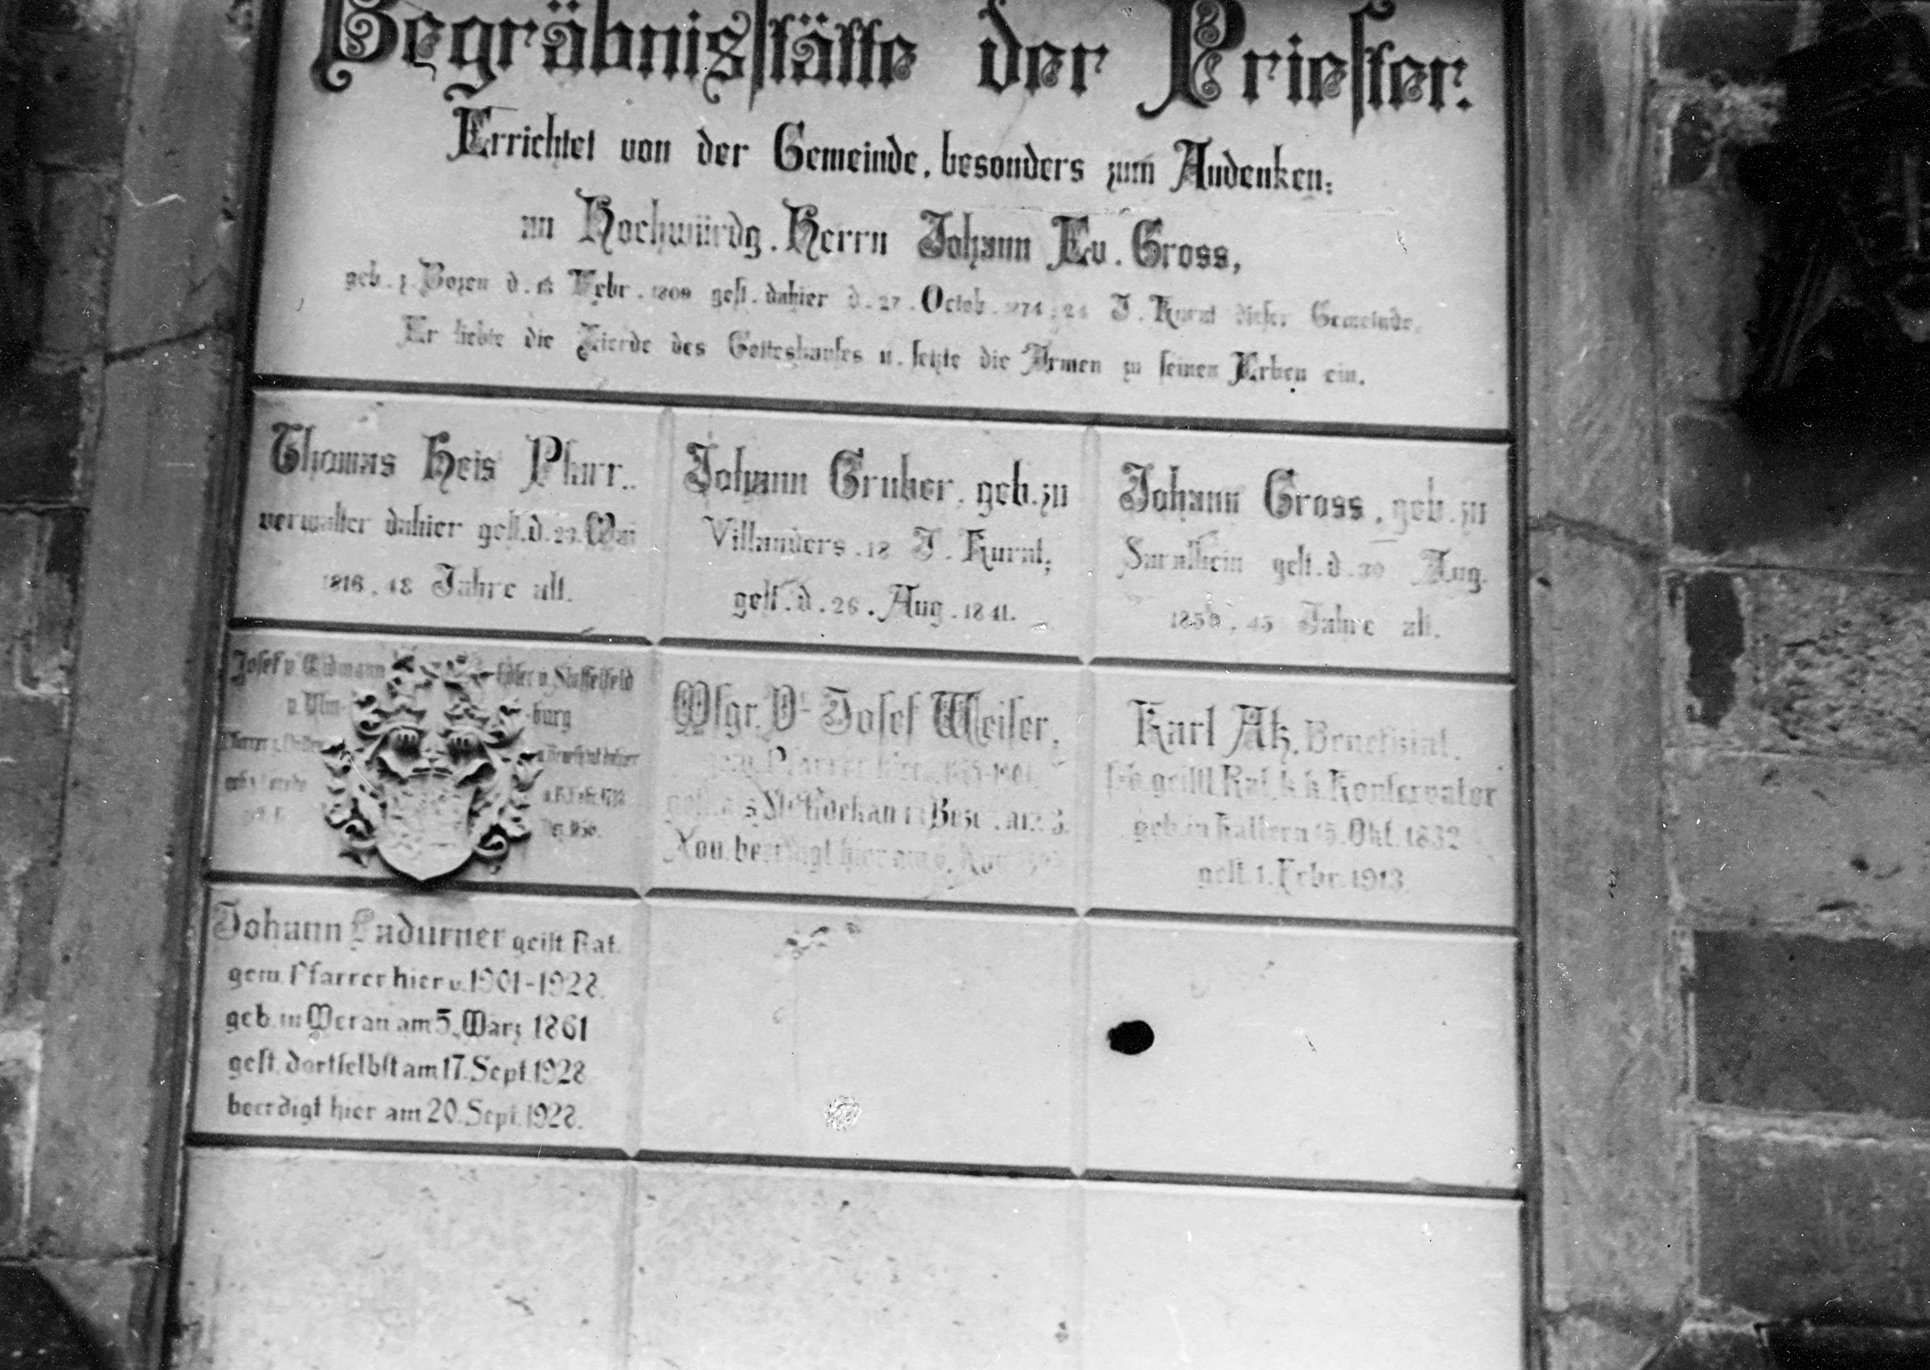 Begräbnisstätte der Priester.
Errichtet von der Gemeinde, besonders zum Andenken:
an Hochwürdg. Herrn Johann Ev. Gross,
geb. z. Bozen d. Febr. 1809 gest. dahier d. 27. Octob. 1874; 24 J. Kurat dieser Gemeinde.
Er liebte die Zierde des Gotteshauses u. setzte die Armen zu seinen Erben ein.
Thomas Heis Pfarr-
verwalter dahier gest. d. 29. Mai
1816, 48 Jahre alt.
Johann Gruber, geb. zu
Villanders. 18 J. Kurat,
gest. d. 26. Aug. 1841.
Johann Gross, geb. zu
Sarnthein gest. d. 30 Aug.
1850, 45 Jahre alt.
Josef v. Widmann Edler v. Staffelfeld
v. Ulm- -burg
Pfarrer u. Benefiziat dahier
Msgr. Dr. Josef Weiser,
gew. Pfarrer hier
gest. als Stiftdekan Bozen am 3.
Nov. beerdigt hier am 6. Nov.
Karl Atz, Benefiziat,
f. b. geistl. Rat, k. k. Konservator
geb. in Kaltern 15. Okt. 1832
gest. 1. Febr. 1913
Johann Ladurner geistl. Rat.
gew. Pfarrer hier v. 1901-1928.
geb. in Meran am 5. März 1861
gest. dortselbst am 17. Sept. 1928
beerdigt hier am 20. Sept. 1928.